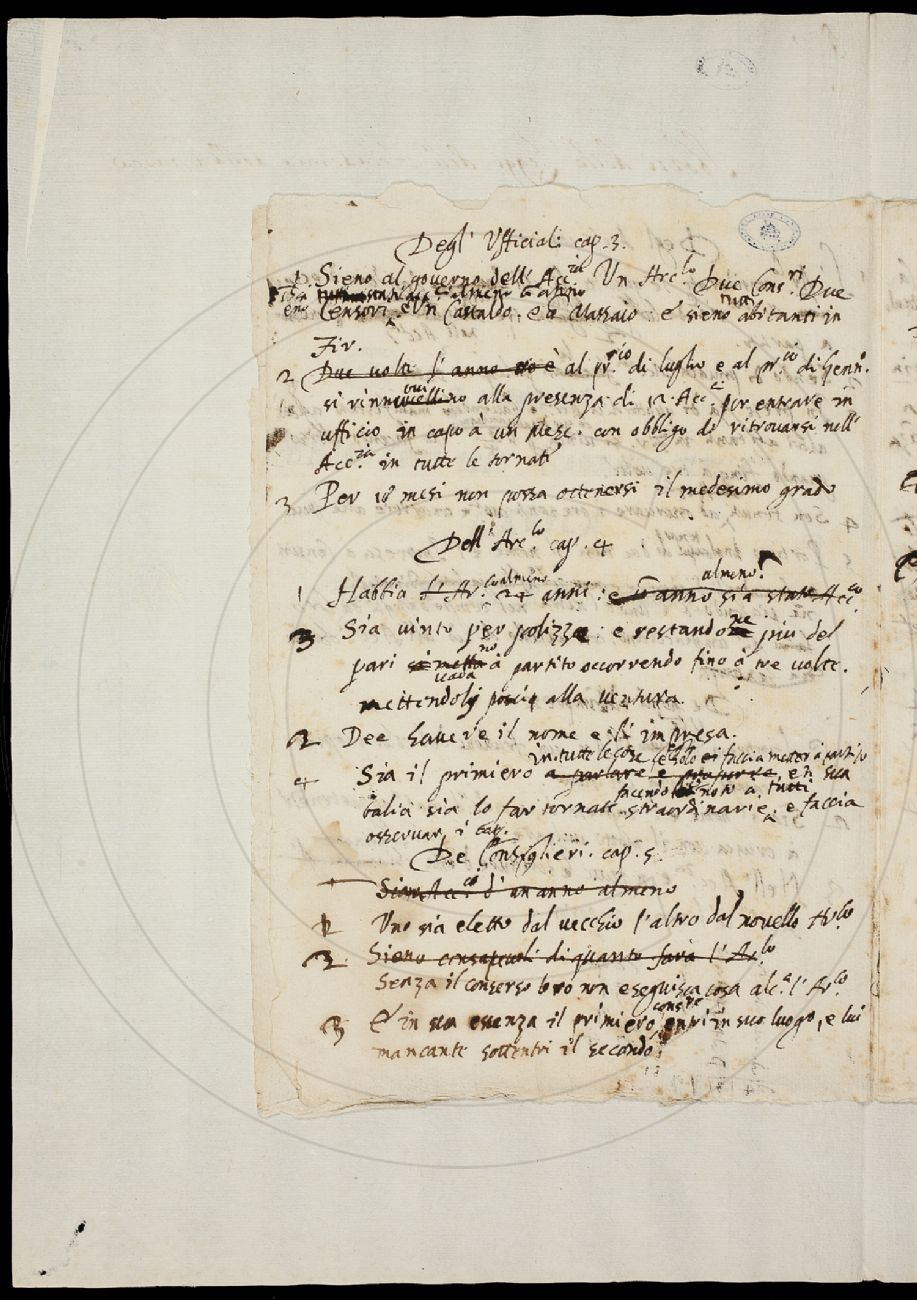 Degl' Ufficiali cap. 3.
1. Sieno al governo dell' Acc.ia Un Arc.lo Due Cons.ri Due
Censori, e Un Castaldo. e a Massaio: e sieno tutti abitanti in
Fir.
2 Due volte l'anno cio è al pr.cio di luglio e al pr.cio di Genn.
si rinnuovino alla presenza di 12 Acc.ci per entrare in
ufficio in capo à un mese. con obbligo di ritrovarsi nell'
Acc.ia in tutte le tornate
3 Per 18 mesi non possa ottenersi il medesimo grado
Dell' Arc.lo cap. 4
almeno
1 Habbia l'Ar.co almeno 24 anni: e un anno sia stato Acc.co
3 Sia vinto per polizze: e restandone piu del
pari si metta vadano à partito occorrendo fino à tre volte.
mettendoli poscia alla ventura.
2 Dee havere il nome e l'impresa.
in tutte le cose, e solo ei faccia metter à partito
4 Sia il primiero a parlare e proporre, e in sua
facendo noto a tutti
balia sia lo far tornate straordinarie, e faccia
osservar i cap.
De Consiglieri. cap. 5.
Sieno Acc.ci d' un anno almeno
1 Uno sia eletto dal vecchio l'altro dal novello Ar.lo
2 Sieno consapevoli di quanto farà l'Ar.lo
Senza il consenso loro non eseguisca cosa alc.a l'Ar.lo
3 E in sua assenza il primiero cons.re entri in suo luogo, e lui
mancante sottentri il secondo.